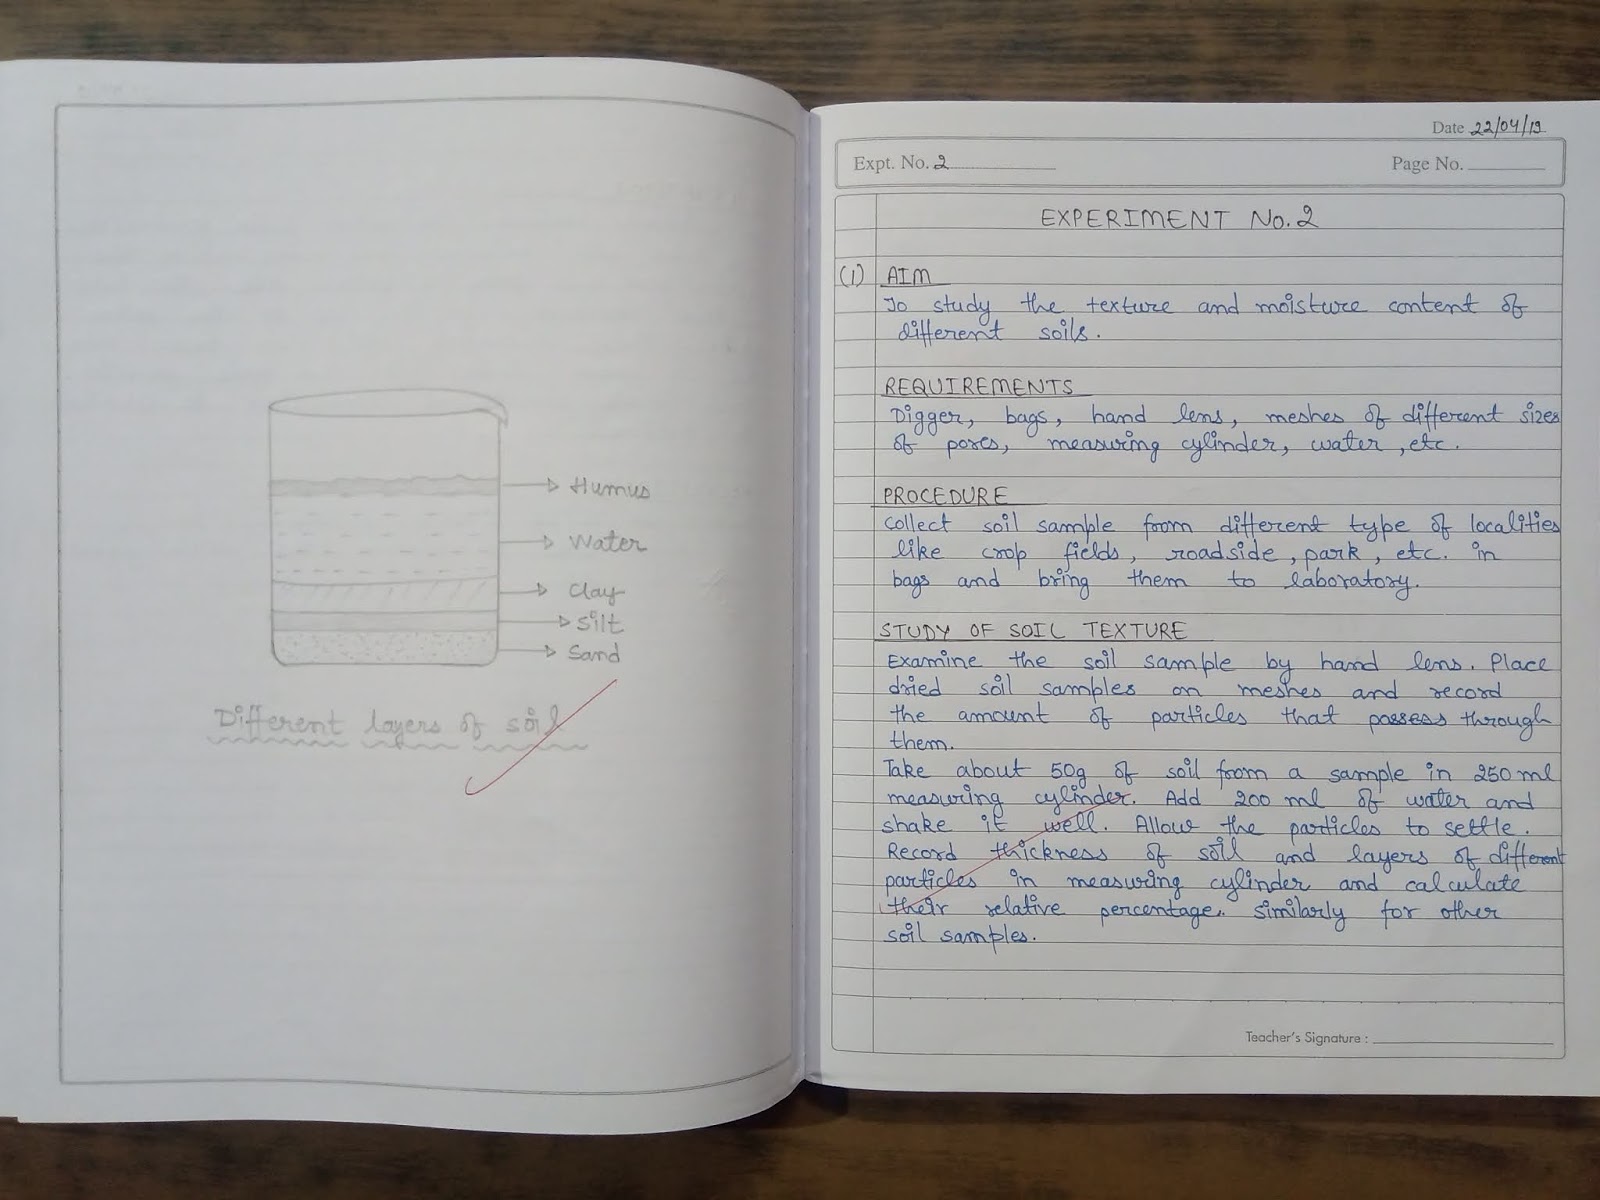 Humus
Water
Clay
Silt
Sand
Different layers of soil
Date 22/04/19
Expt. No. 2
Page No.
EXPERIMENT No. 2
(1) AIM
To study the texture and moisture content of
different soils.
REQUIREMENTS
Digger, bags, hand lens, meshes of different sizes
of pores, measuring cylinder, water, etc.
PROCEDURE
Collect soil sample from different type of localities
like crop fields, roadside, park, etc. in
bags and bring them to laboratory.
STUDY OF SOIL TEXTURE
Examine the soil sample by hand lens. Place
dried soil samples on meshes and record
the amount of particles that passess through
them.
Take about 50g of soil from a sample in 250 ml
measuring cylinder. Add 200 ml of water and
shake it well. Allow the particles to settle.
Record thickness of soil and layers of different
particles in measuring cylinder and calculate
their relative percentage. Similarly for other
soil samples.
Teacher's Signature :